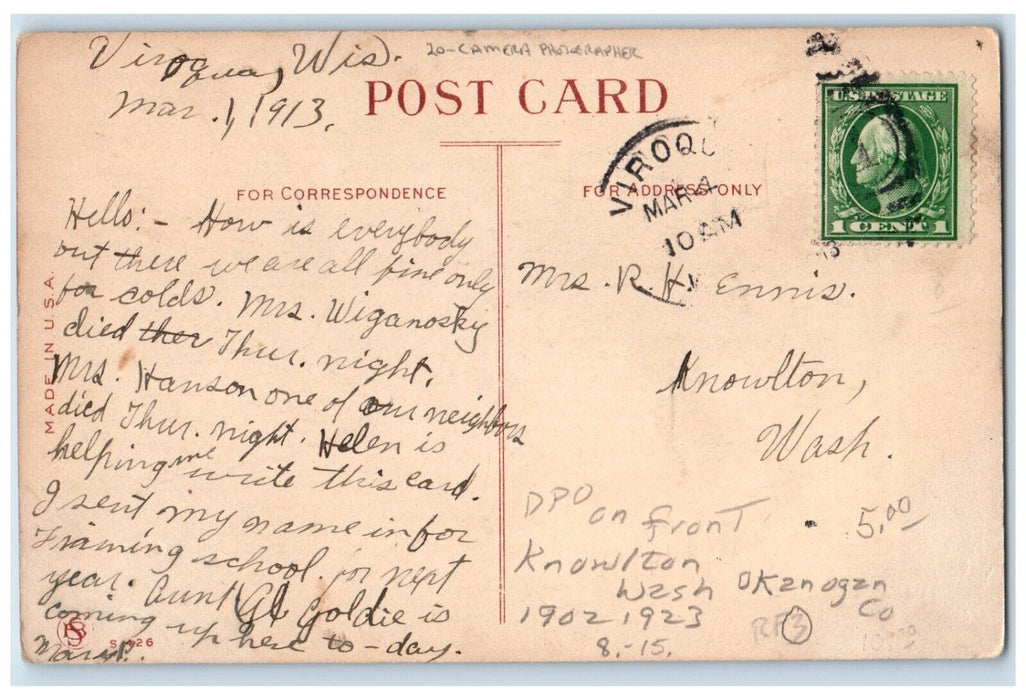 Viroqua, Wis.
Mar. 1, 1913.
20-CAMERA PHOTOGRAPHER
POST CARD
FOR CORRESPONDENCE
FOR ADDRESS ONLY
MADE IN U.S.A.
Hello:- How is everybody
out there we are all fine only
for colds. Mrs. Wiganosky
died ther Thur. night.
Mrs. Hanson one of our neighbors
died Thur. night. Helen is
helping me write this card.
I sent my name in for
Training school for next
year. Aunt Gl Goldie is
coming up here to-day.
S-426
VIROQU
MAR 1
10 AM
13
U.S. POSTAGE
1 CENT 1
Mrs. R. H. Ennis.
Knowlton,
Wash.
DPO on front
5.00
Knowlton
Wash Okanogan
Co
1902 1923
8.-15.
RF3
10.00